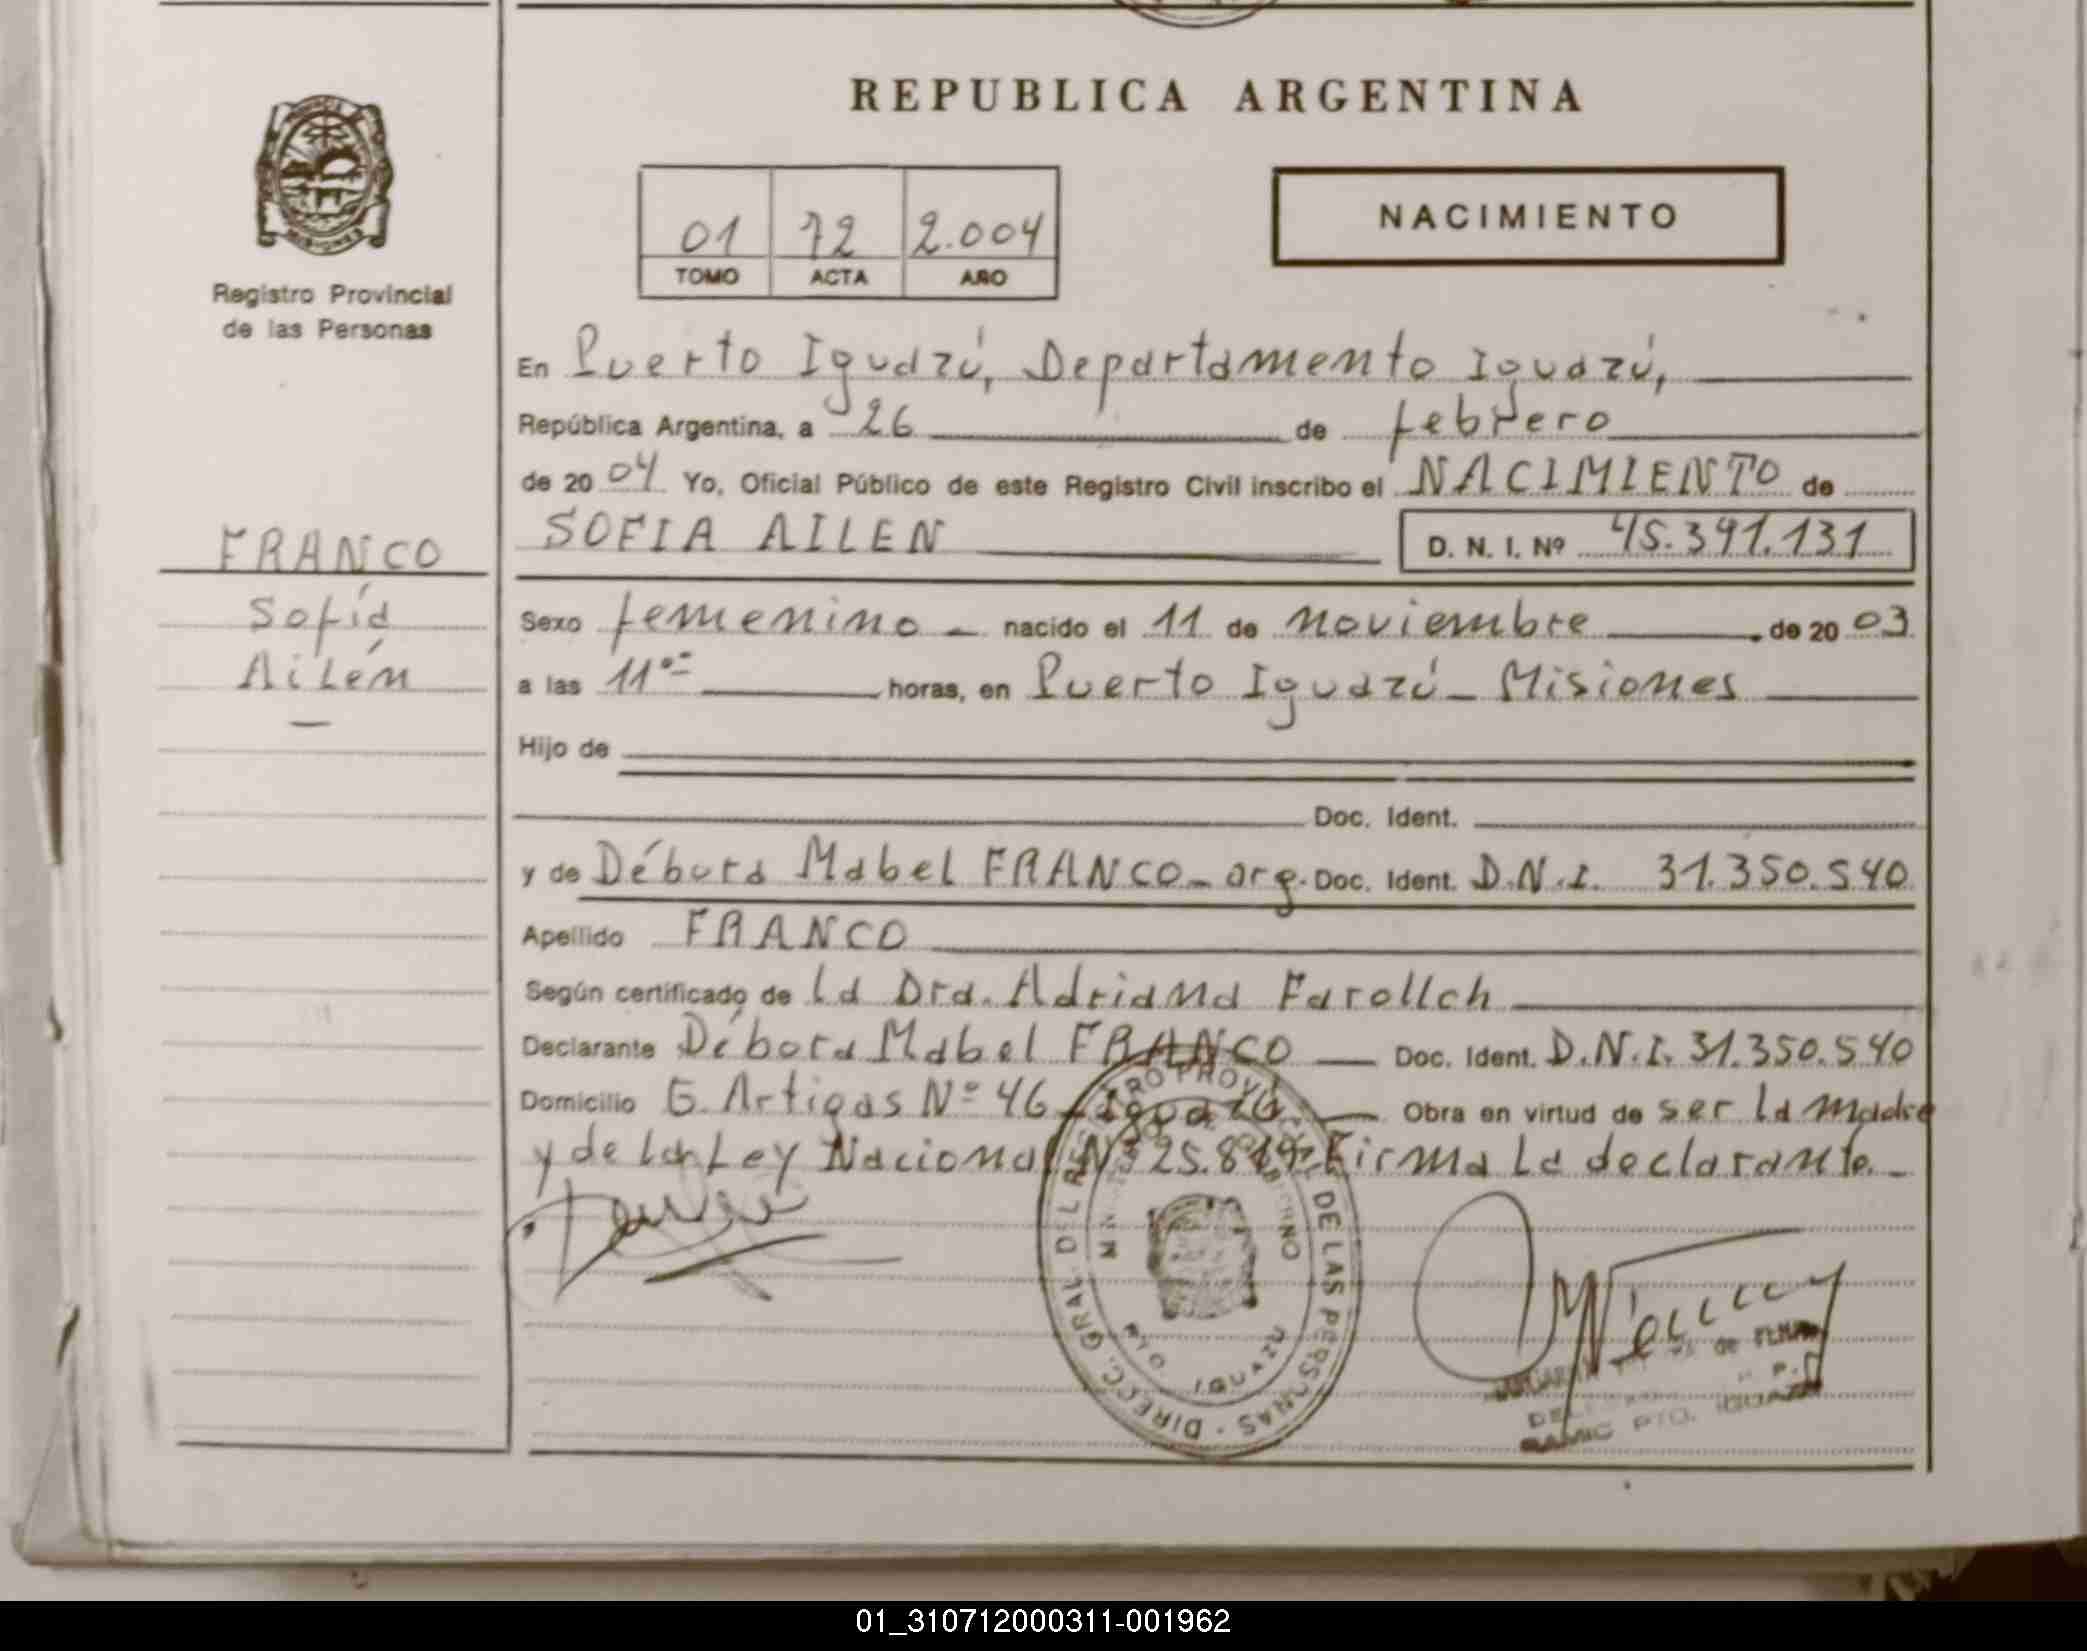 REPUBLICA ARGENTINA
MISIONES
Registro Provincial
de las Personas
01 72 2.004
TOMO ACTA AÑO
NACIMIENTO
En Puerto Iguazú, Departamento Iguazú,
República Argentina, a 26 de febrero
de 20 04 Yo, Oficial Público de este Registro Civil inscribo el NACIMIENTO de
SOFIA AILEN D. N. I. Nº 45.391.131
FRANCO
Sofía
Ailén
Sexo femenino nacido el 11 de noviembre de 20 03
a las 11°° horas, en Puerto Iguazú - Misiones
Hijo de
Doc. Ident.
y de Débora Mabel FRANCO - arg. Doc. Ident. D.N.I. 31.350.540
Apellido FRANCO
Según certificado de la Dra. Adriana Farollch
Declarante Débora Mabel FRANCO Doc. Ident. D.N.I. 31.350.540
Domicilio G. Artigas Nº 46 - Iguazú Obra en virtud de ser la madre
y de la Ley Nacional Nº 25.819 - Firma la declarante. -
DIRECC. GRAL. DEL REGISTRO PROVINCIAL DE LAS PERSONAS
PTO. IGUAZU
SAMIC PTO. IGUAZU
01_310712000311-001962